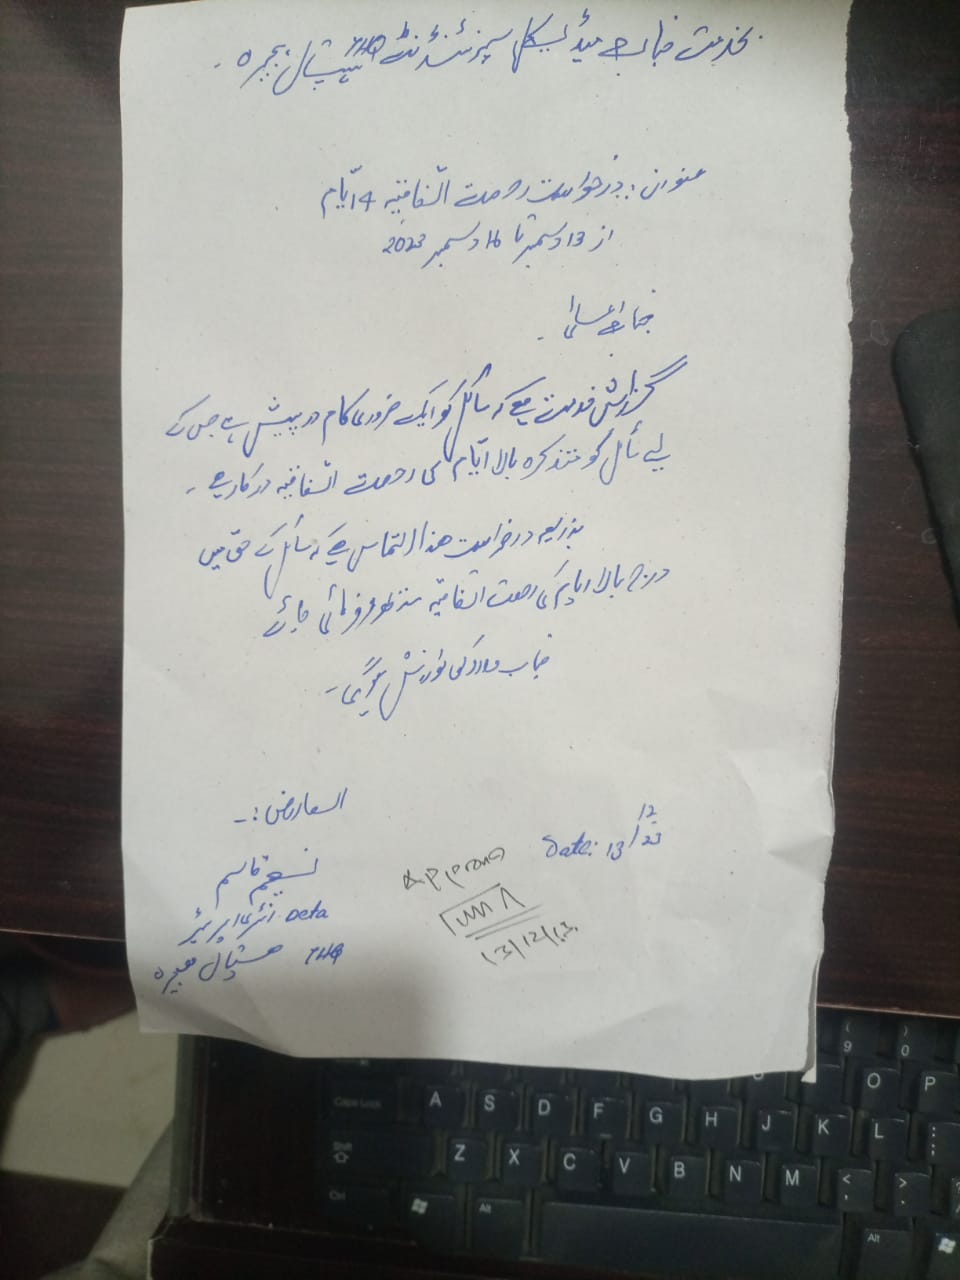 بخدمت جناب میڈیکل سپرنٹنڈنٹ THQ ہسپتال ہجیرہ۔
عنوان: درخواست رخصت اتفاقیہ 4 ایّام
از 13 دسمبر تا 16 دسمبر 2023
جناب اعلیٰ!
گزارش خدمت ہے کہ سائل کو ایک ضروری کام درپیش ہے جس کے
لیے سائل کو متذکرہ بالا ایّام کی رخصت اتفاقیہ درکار ہے۔
بذریعہ درخواست ھذا التماس ہے کہ سائل کے حق میں
درج بالا ایام کی رخصت اتفاقیہ منظور فرمائی جائے
جناب والا کی نوازش ہوگی۔
العارض:-
نسیم قاسم
Deta انٹری اپریٹر
THQ ہسپتال ہجیرہ
Date: 13/12/23
Approved
13/12/23
Caps Lock A S D F G H J K L : ;
Shift Z X C V B N M < , > .
Ctrl Alt Alt
( 9 ) 0
O P